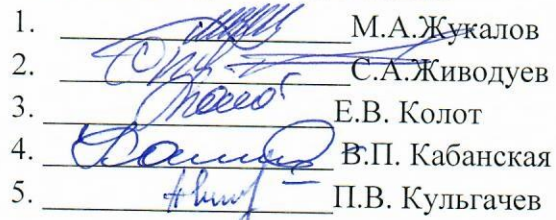 1. М.А.Жукалов
2. С.А.Живодуев
3. Е.В. Колот
4. В.П. Кабанская
5. П.В. Кульгачев